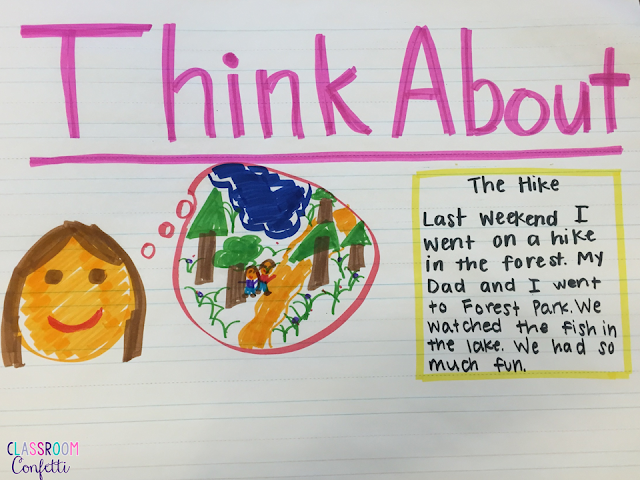 Think About
The Hike
Last weekend I
went on a hike
in the forest. My
Dad and I went
to Forest Park. We
watched the fish in
the lake. We had so
much fun.
CLASSROOM
Confetti